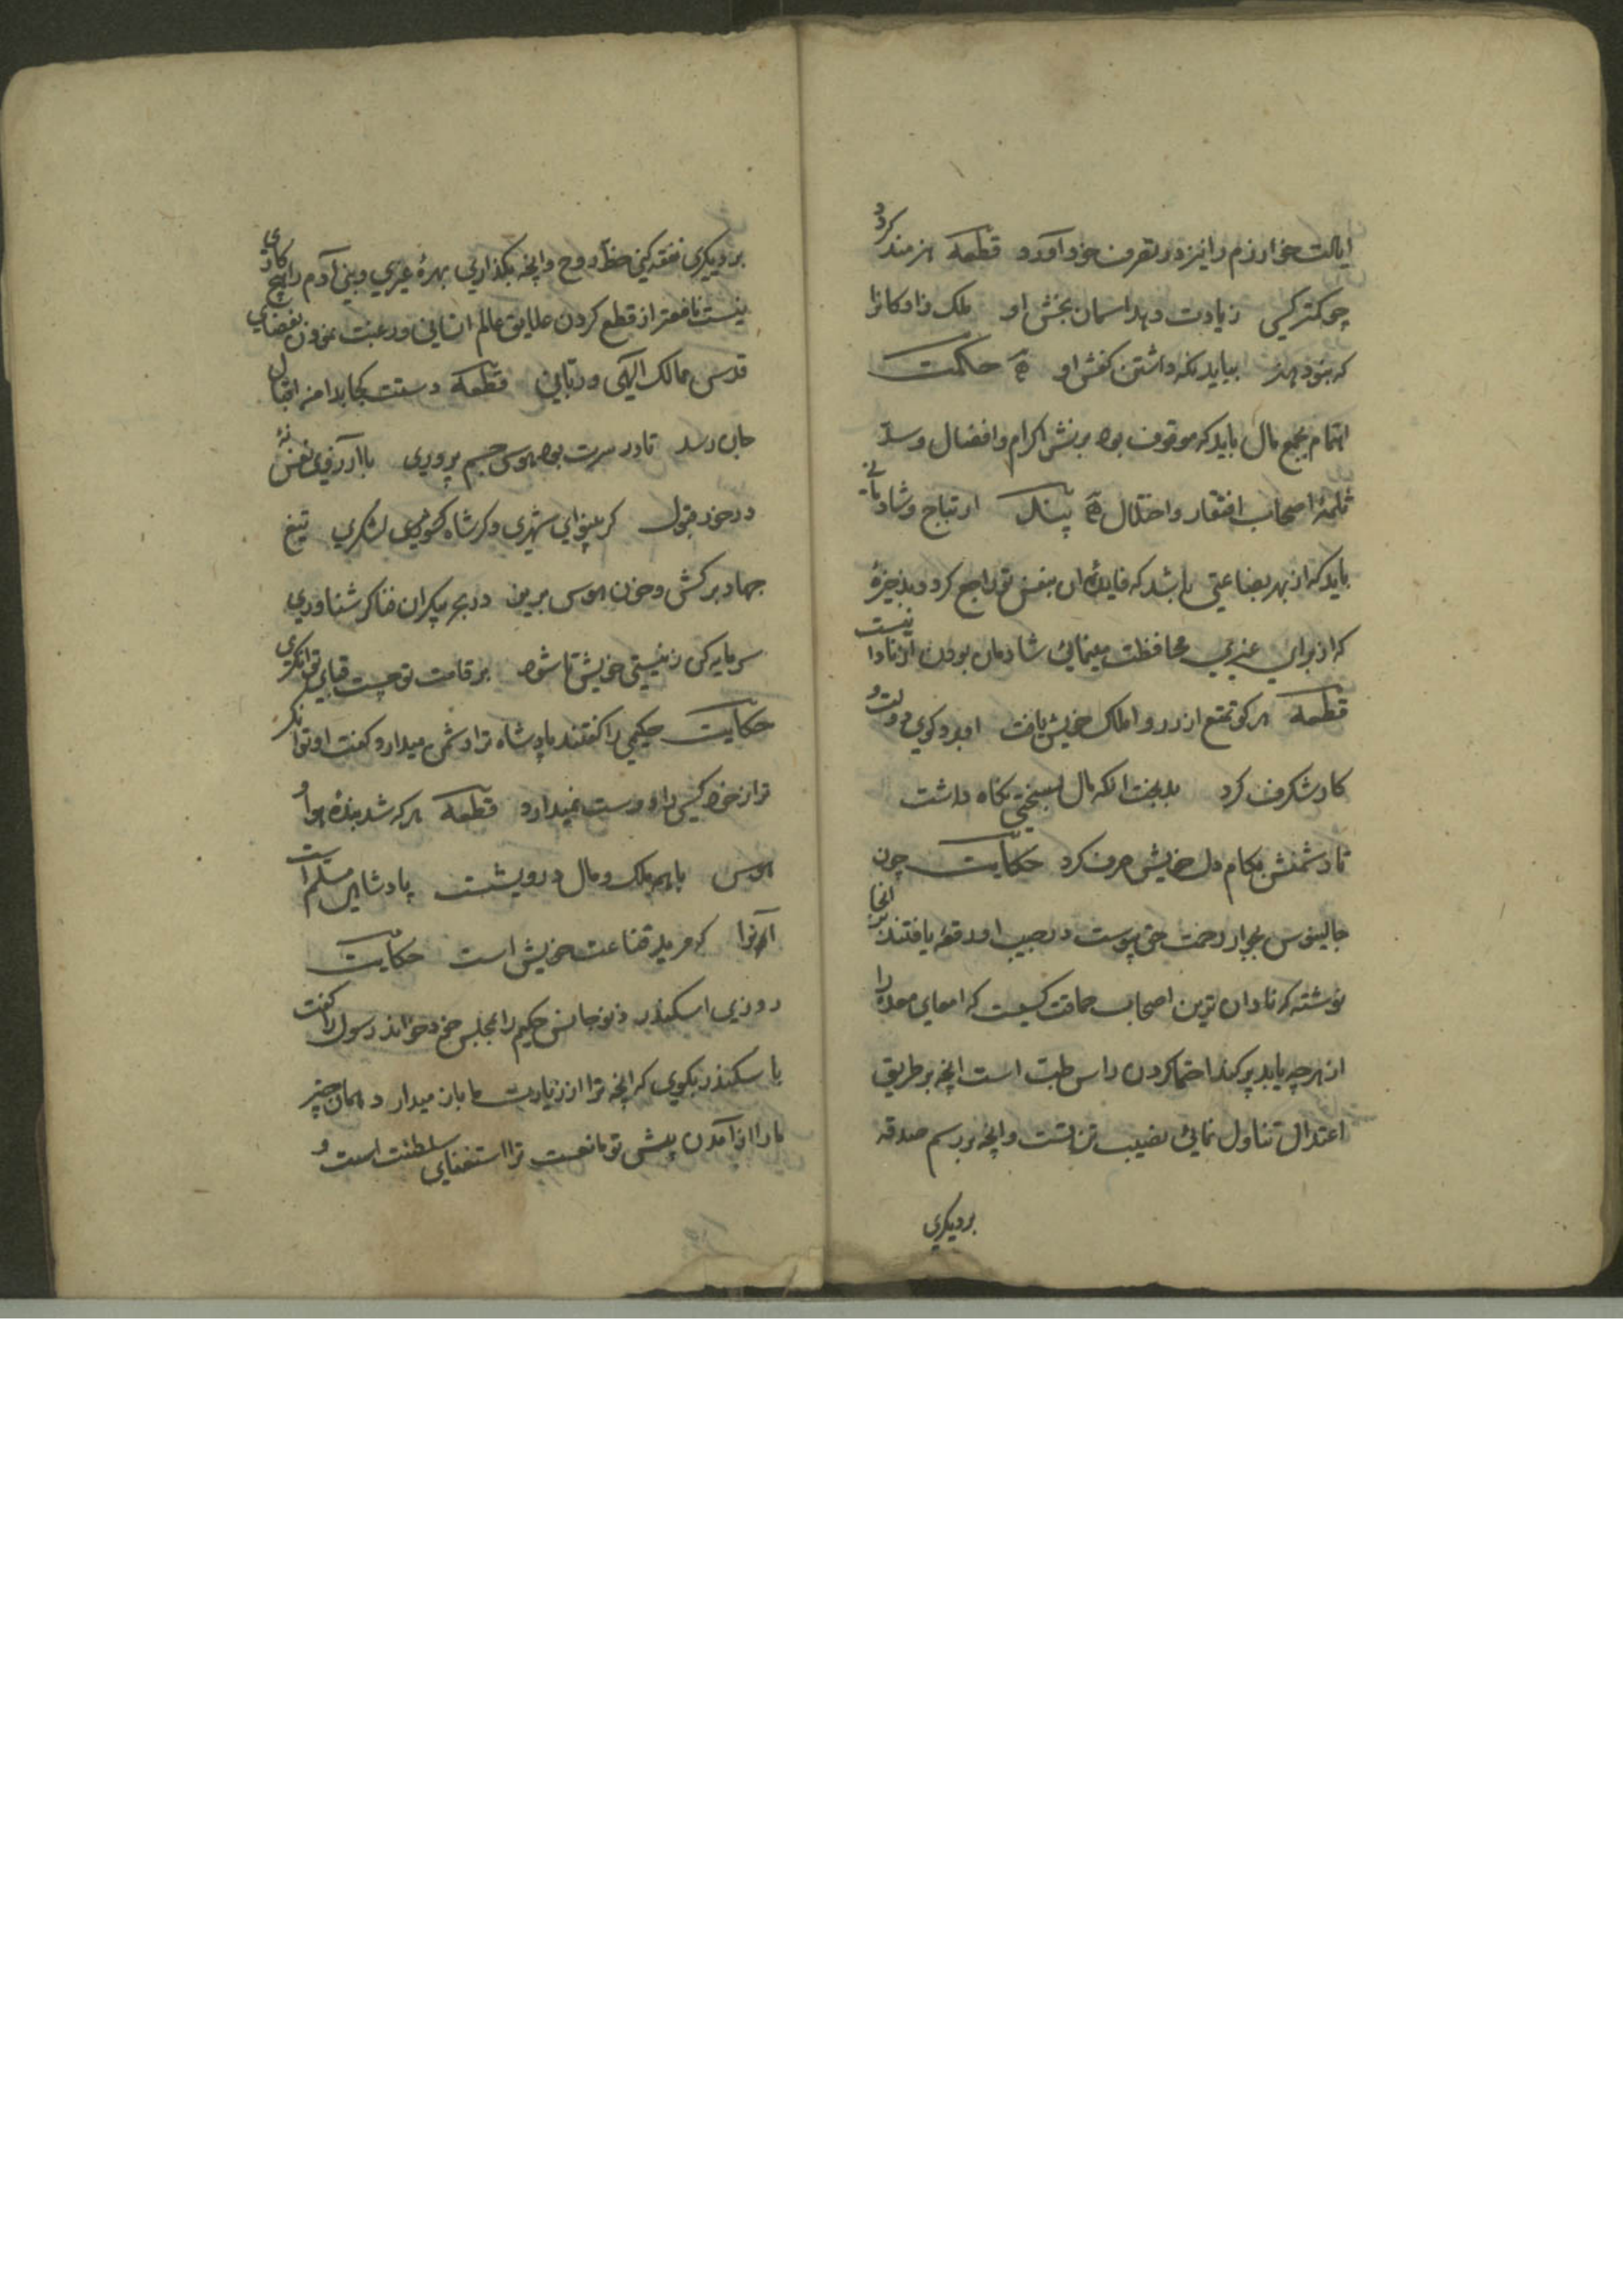 ایالت خوارزم را نیز در تصرف خود آورد قطعه هنرمند کردد
چو کمتر کسی زیادت دهد اسمان بخش او ملک زادکانرا
که نبود هنر بباید نکه داشتن کفش او حکمت
اهتمام بجمع مال باید که موقوف بود بر نشر اکرام وافضال وسد
ثلمهٔ اصحاب افتقار واختلال پند ابتهاج وشادمانی
باید که از بهر بضاعتی باشد که فایدهٔ ان بنفس تو راجع کردد بذخیرهٔ
که از برای غیری محافظت مینمائی شادمان بودن از نادانیست
قطعه هر کو تمتع از زر و املاک خویش یافت او برد کوی دولت و
کار شکرف کرد بدبخت انکه مال بسختی نکاه داشت
تا دشمنش بکام دل خویش صرف کرد حکایت چون
جالینوس بجوار رحمت حق پیوست در جیب او رقعه یافتند در انجا
نوشته که نادان ترین اصحاب حماقت کسیست که امعای معده را
از هر چه یابد پر کند احتما کردن راس طبت است انچه بر طریق
اعتدال تناول نمائی نصیب تن تست وانچه بر رسم صدقه
بر دیکری
بر دیکری نفقه کنی حظ روح وانچه بکذاری بهرهٔ غیری وبنی آدم را هیچ کاری
نیست نافعتر از قطع کردن علایق عالم انسانی ورغبت نمودن بفضای
قدس ممالک الهی وربانی قطعه دستت کجا بدامن اقبال
جان رسد تا در سرت بود هوس جسم پروری با آرزوی نفس نهٔ
در خور قبول کر بینوای شهری وکر شاه لشکری تیغ
جهاد برکش وخون هوس بریز در بحر بیکران فنا کن شناوری
سرمایه کن زنیستی خویش تا شود بر قامت تو چست قبای توانکری
حکایت حکیمی را کفتند پادشاه ترا دشمن میدارد کفت او توانکر
تر از خود کسی را دوست نمیدارد قطعه هر که شد بندهٔ هوا و
هوس با همه ملک ومال درویشست پادشاهی مسلم است
آنرا که مرید قناعت خویش است حکایت
روزی اسکندر دیوجانس حکیم را بمجلس خود خواند رسول را کفت
با سکندر بکوی که انچه ترا از زیارت ما باز میدارد همان چیز
ما را از آمدن پیش تو مانعست ترا استغنای سلطنت است و